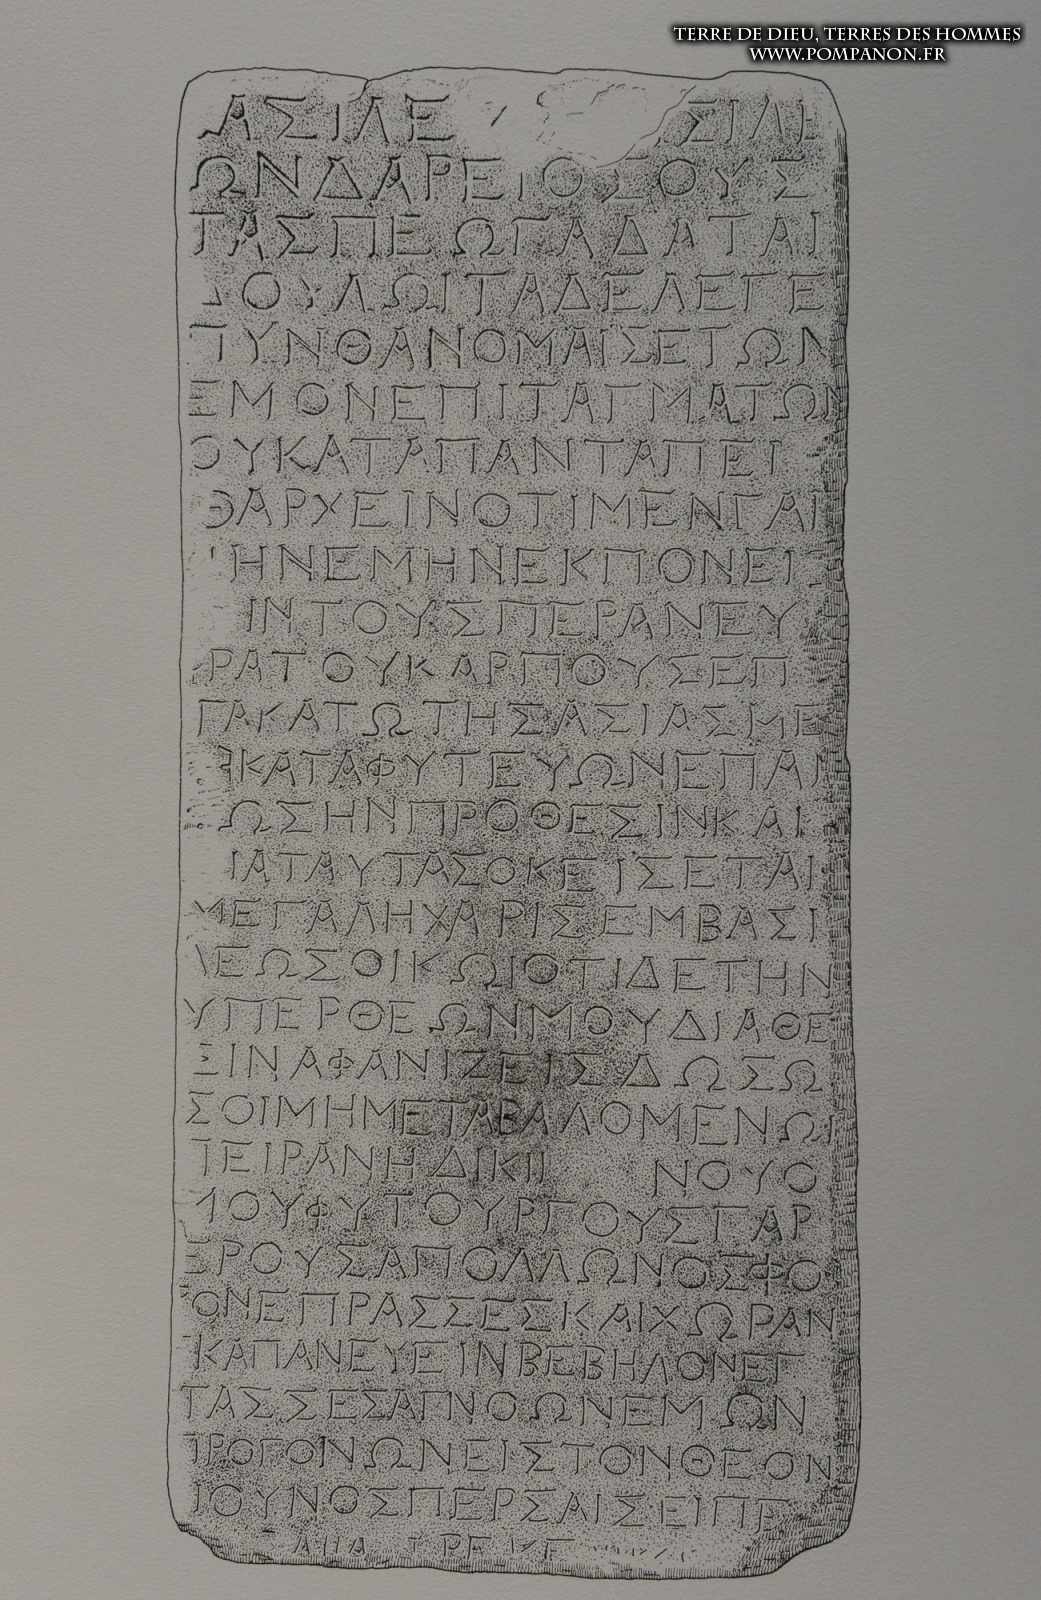 TERRE DE DIEU, TERRES DES HOMMES
WWW.POMPANON.FR
ΑΣΙΛΕ ΣΙΛΕ
ΩΝΔΑΡΕΙΟΣΟΥΣ
ΤΑΣΠΕΩΓΑΔΑΤΑΙ
ΟΥΛΩΙΤΑΔΕΛΕΓΕ
ΠΥΝΘΑΝΟΜΑΙΣΕΤΩΝ
ΕΜΟΝΕΠΙΤΑΓΜΑΤΩΝ
ΟΥΚΑΤΑΠΑΝΤΑΠΕΙ
ΘΑΡΧΕΙΝΟΤΙΜΕΝΓΑΙ
ΗΝΕΜΗΝΕΚΠΟΝΕΙ
ΙΝΤΟΥΣΠΕΡΑΝΕΥ
ΡΑΤΟΥΚΑΡΠΟΥΣΕΠ
ΓΑΚΑΤΩΤΗΣΑΣΙΑΣΜΕ
ΚΑΤΑΦΥΤΕΥΩΝΕΠΑΙ
ΩΣΗΝΠΡΟΘΕΣΙΝΚΑΙ
ΙΑΤΑΥΤΑΣΟΚΕΙΣΕΤΑΙ
ΜΕΓΑΛΗΧΑΡΙΣΕΜΒΑΣΙ
ΛΕΩΣΟΙΚΩΙΟΤΙΔΕΤΗΝ
ΥΠΕΡΘΕΩΝΜΟΥΔΙΑΘΕ
ΣΙΝΑΦΑΝΙΖΕΙΣΔΩΣΩ
ΣΟΙΜΗΜΕΤΑΒΑΛΟΜΕΝΩΙ
ΠΕΙΡΑΝΗΔΙΚΗ ΝΟΥΟ
ΜΟΥΦΥΤΟΥΡΓΟΥΣΓΑΡ
ΕΡΟΥΣΑΠΟΛΛΩΝΟΣΦΟ
ΟΝΕΠΡΑΣΣΕΣΚΑΙΧΩΡΑΝ
ΚΑΠΑΝΕΥΕΙΝΒΕΒΗΛΟΝΕΠ
ΤΑΣΣΕΣΑΓΝΟΩΝΕΜΩΝ
ΠΡΟΓΟΝΩΝΕΙΣΤΟΝΘΕΟΝ
ΝΟΥΝΟΣΠΕΡΣΑΙΣΕΙΠΕ